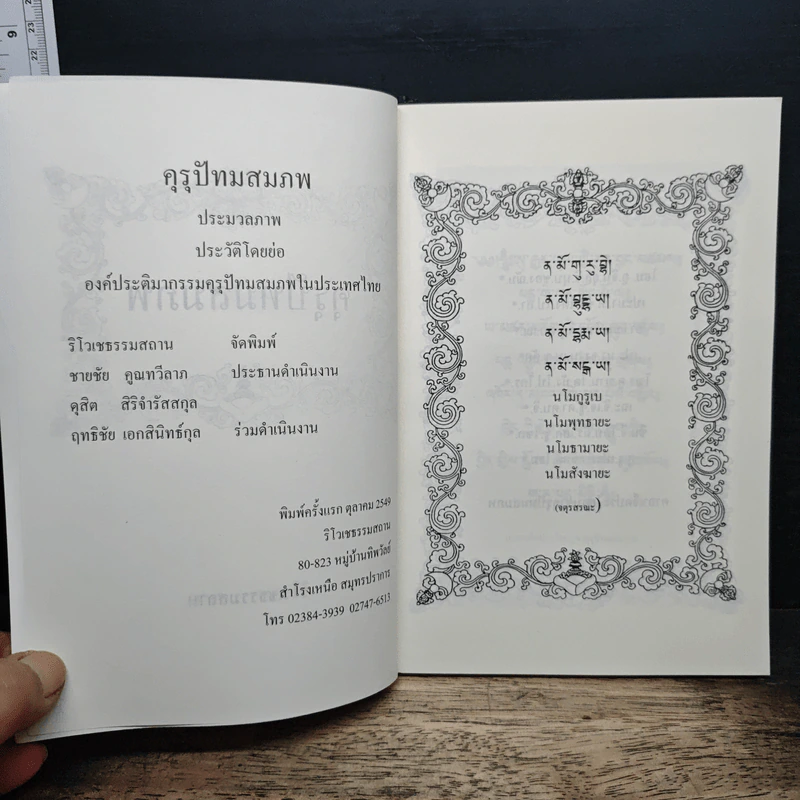 คุรุปัทมสมภพ
ประมวลภาพ
ประวัติโดยย่อ
องค์ประติมากรรมคุรุปัทมสมภพในประเทศไทย
ริโวเชธรรมสถาน จัดพิมพ์
ชายชัย คูณทวีลาภ ประธานดำเนินงาน
ดุสิต สิริจำรัสสกุล
ฤทธิชัย เอกสินิทธ์กุล ร่วมดำเนินงาน
พิมพ์ครั้งแรก ตุลาคม 2549
ริโวเชธรรมสถาน
80-823 หมู่บ้านทิพวัลย์
สำโรงเหนือ สมุทรปราการ
โทร 02384-3939 02747-6513
ན་མོ་གུ་རུ་བྷེ།
ན་མོ་བུདྡྷ་ཡ།
ན་མོ་དྷརྨ་ཡ།
ན་མོ་སངྒྷ་ཡ།
นโมกูรูเบ
นโมพุทธายะ
นโมธามายะ
นโมสังฆายะ
(จตุรสรณะ)
9
23
22